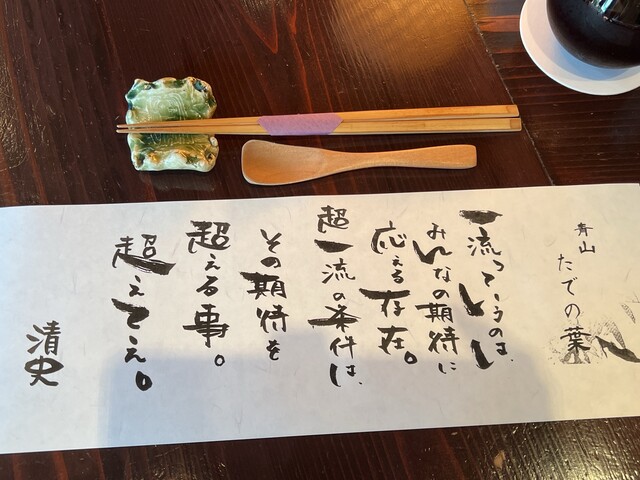 青山
たでの葉
一流っていうのは、
みんなの期待に
応える存在。
超一流の条件は、
その期待を
超える事。
超えてえ。
清史